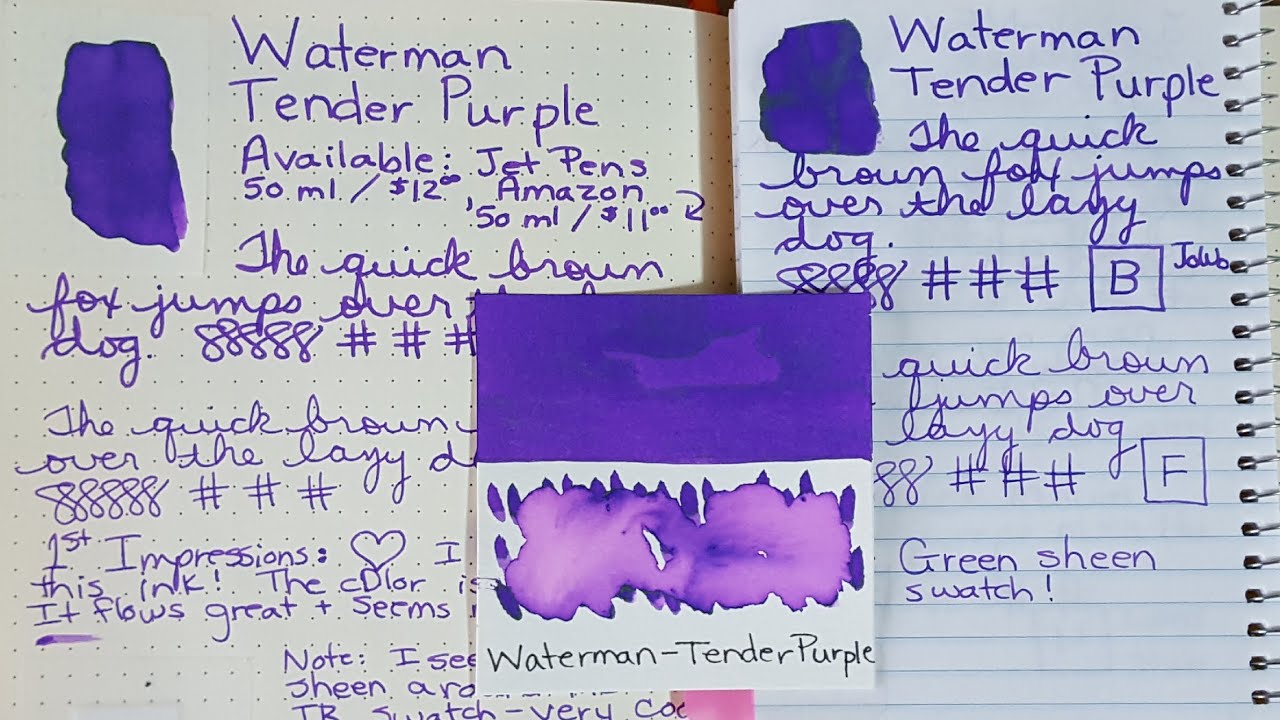 Waterman
Tender Purple
Available: Jet Pens
50 ml / $12⁰⁰, Amazon
50 ml / $11⁰⁰
The quick brown
fox jumps over
dog. 88888 # # #
The quick brown
over the lazy d
888888 # # #
1st Impressions: ♡ I
this ink! The color is
It flows great + seems
Note: I see
sheen
swatch - very
Waterman
Tender Purple
The quick
brown fox jumps
over the lazy
dog.
8888 # # # B Jowo
quick brown
jumps over
lazy dog
88 # # # F
Green sheen
swatch!
Waterman - Tender Purple